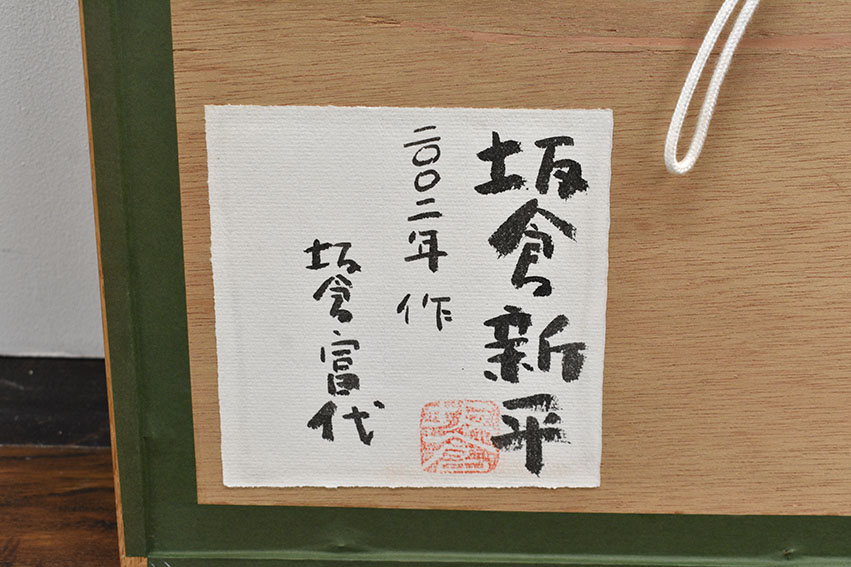 坂倉新平
二〇〇二年 作
坂倉富代
坂倉